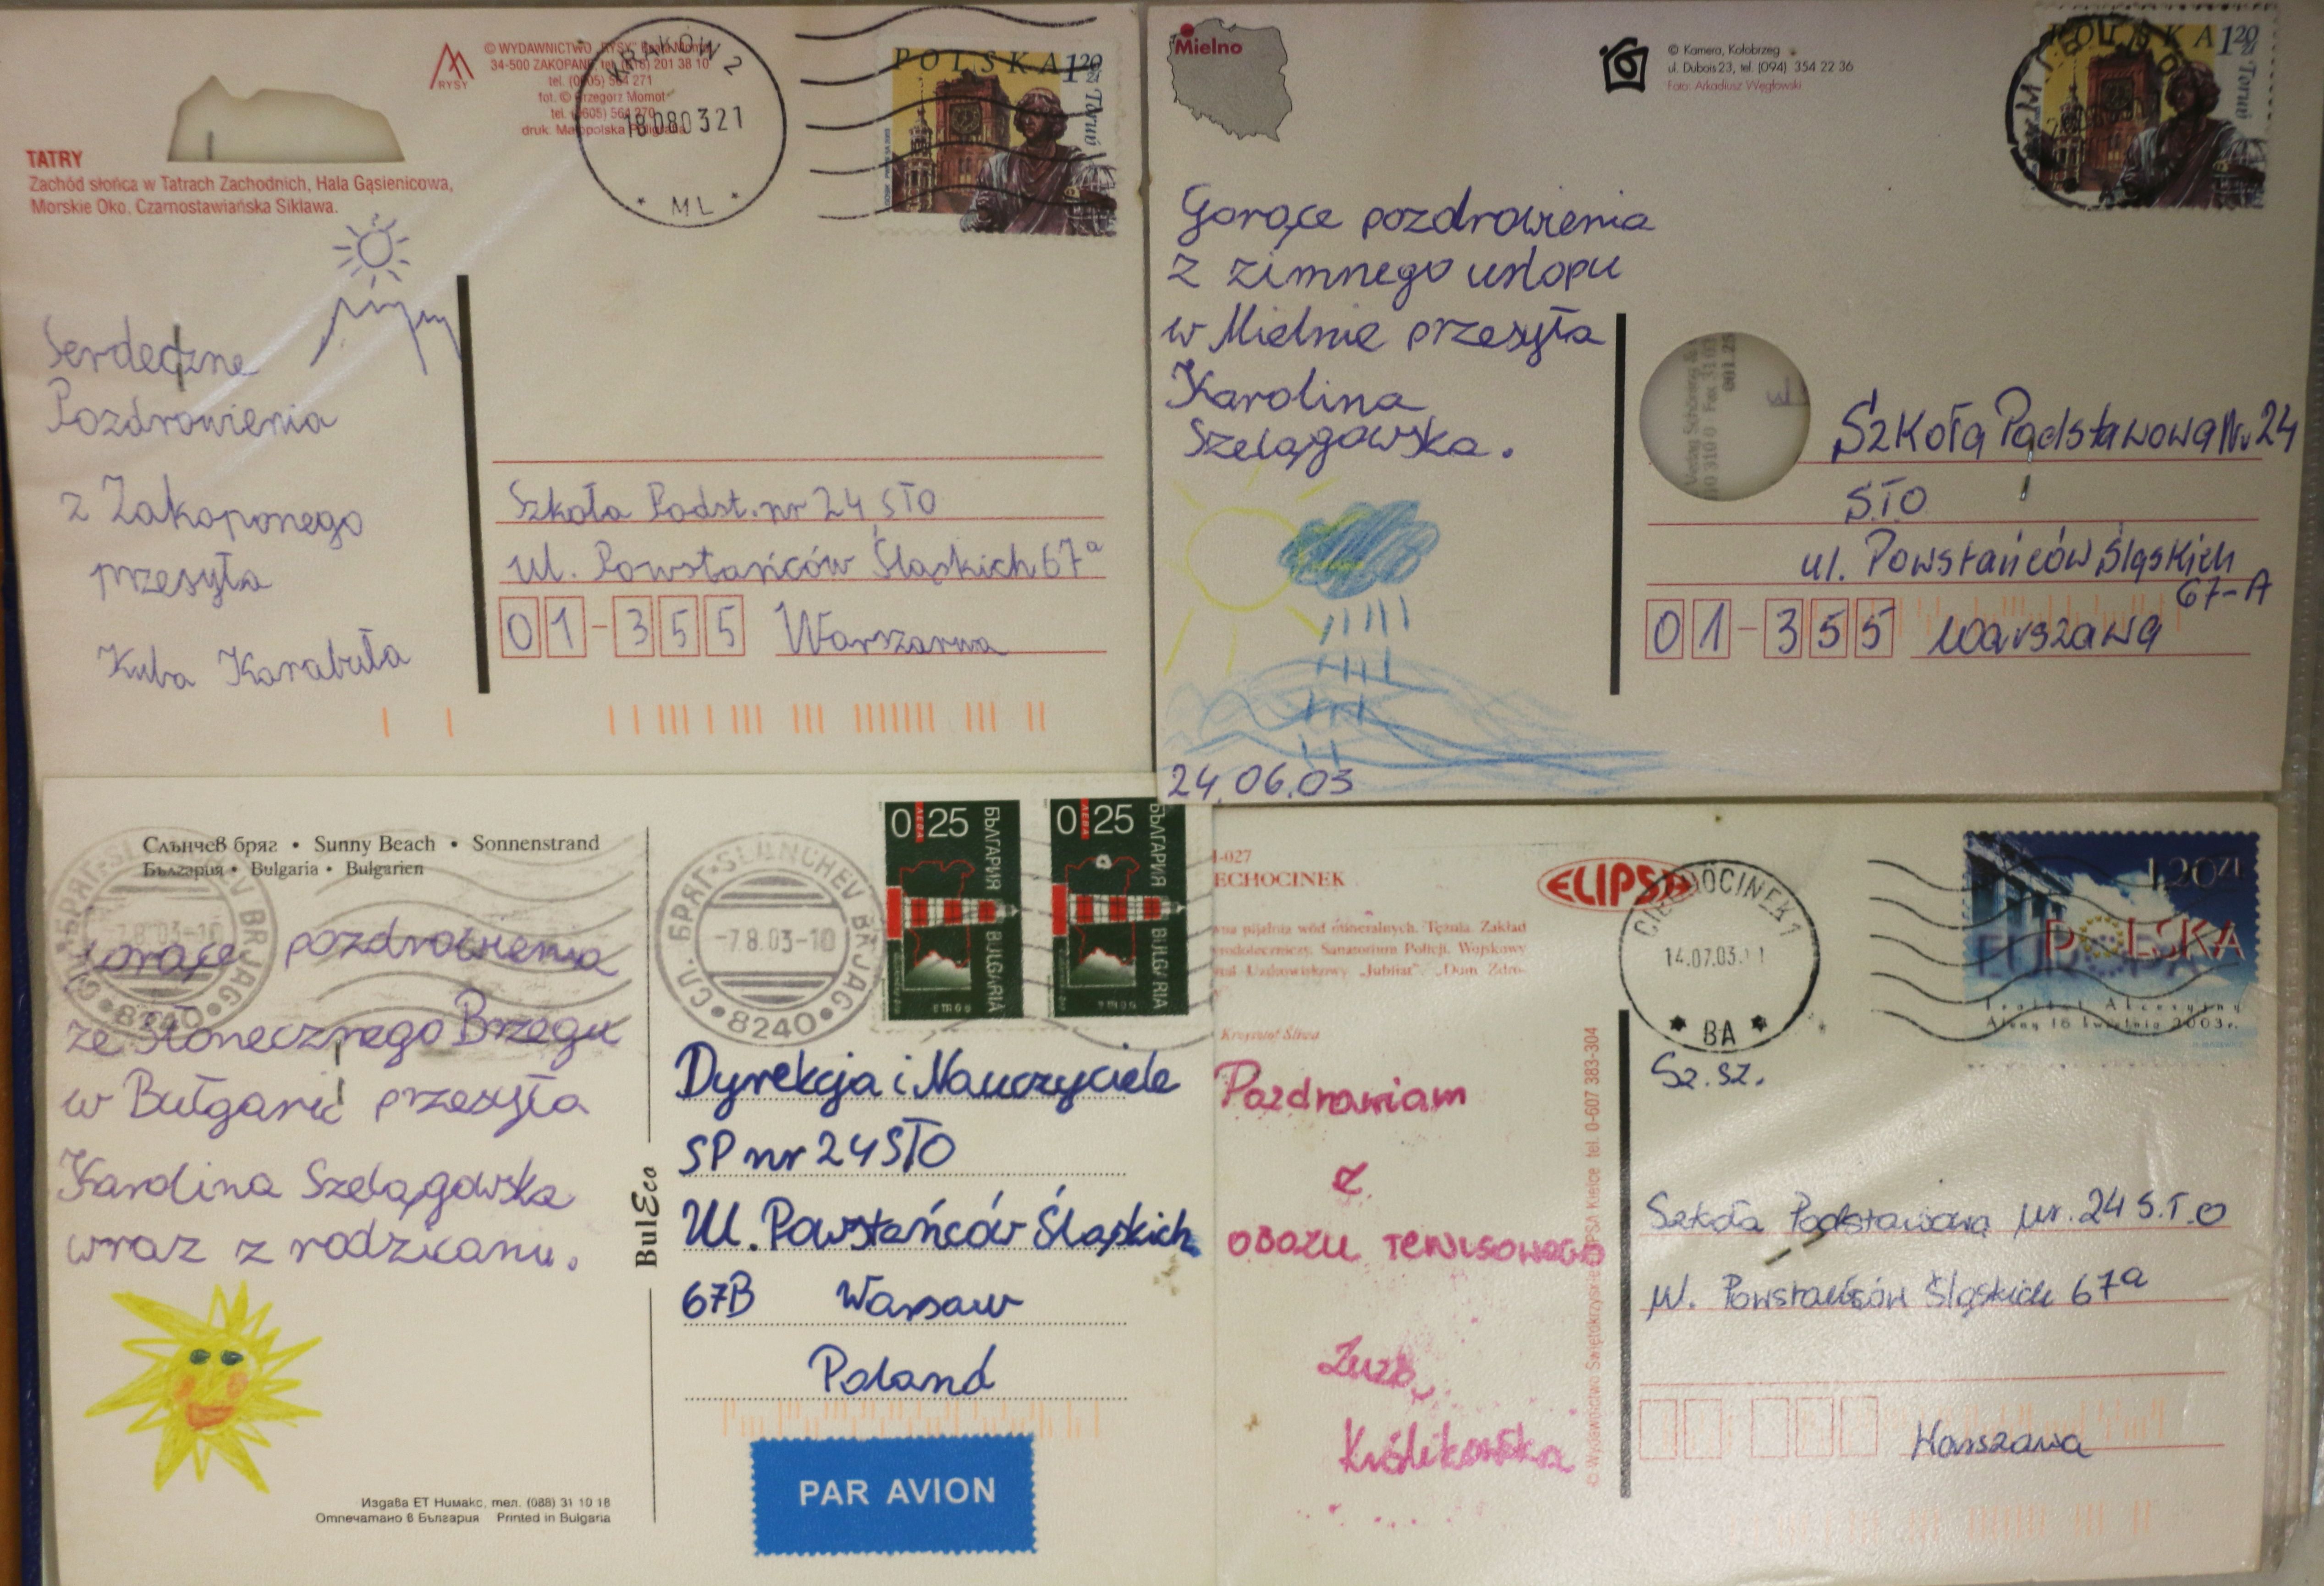 TATRY
Zachód słońca w Tatrach Zachodnich, Hala Gąsienicowa,
Morskie Oko, Czarnostawiańska Siklawa.
RYSY
© WYDAWNICTWO „RYSY”
34-500 ZAKOPANE, tel. 201 38 10
fot. © Grzegorz Momot
KRAKÓW 2
18080321
* ML *
POLSKA 120 ZŁ
Toruń
Serdeczne
Pozdrowienia
z Zakopanego
przesyła
Kuba Karabuła
Szkoła Podst. nr 24 STO
ul. Powstańców Śląskich 67a
01-355 Warszawa
Mielno
© Kamera, Kołobrzeg
ul. Dubois 23, tel. (094) 354 22 36
Foto: Arkadiusz Węgłowski
POLSKA 120 ZŁ
Toruń
Gorące pozdrowienia
z zimnego urlopu
w Mielnie przesyła
Karolina
Szelągowska.
24.06.03
Szkoła Podstawowa Nr 24
STO
ul. Powstańców Śląskich
67-A
01-355 Warszawa
Слънчев бряг • Sunny Beach • Sonnenstrand
България • Bulgaria • Bulgarien
Gorące pozdrowienia
ze Słonecznego Brzegu
w Bułgarii przesyła
Karolina Szelągowska
wraz z rodzicami.
Издава ЕТ Нимакс, тел. (088) 31 10 18
Отпечатано в България Printed in Bulgaria
BulEco
СЛ. БРЯГ-SLANCHEV BRJAG
-7.8.03-10
•8240•
0 ЛЕВА 25 БЪЛГАРИЯ BULGARIA
0 ЛЕВА 25 БЪЛГАРИЯ BULGARIA
Dyrekcja i Nauczyciele
SP nr 24 STO
Ul. Powstańców Śląskich
67B Warsaw
Poland
PAR AVION
I-027
ECHOCINEK
pijalna wód mineralnych. Tężnia. Zakład
Sanatorium Policji. Wojskowy
Krzysztof Śliwa
ELIPSA
CIECHOCINEK 1
14.07.03
* BA *
1,20 ZŁ
POLSKA
EUROPA
Traktat Akcesyjny
Ateny 16 kwietnia 2003 r.
Pozdrawiam
z
OBOZU TENISOWEGO
Zuzia
Królikowska
tel. 0-607 383-304
Sz.sz.
Szkoła Podstawowa nr. 24 S.T.O
ul. Powstańców Śląskich 67a
Warszawa